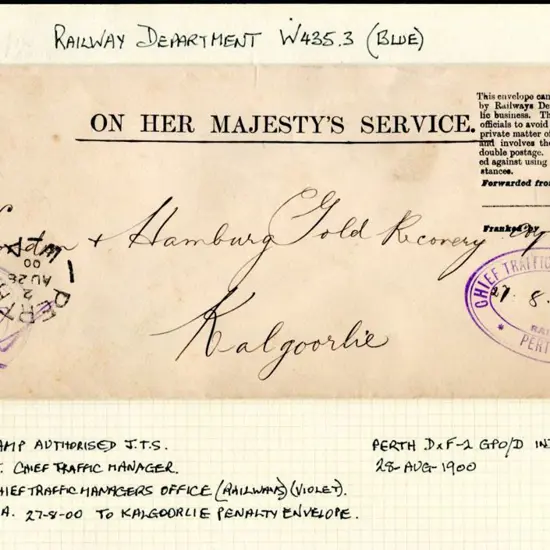 RAILWAY DEPARTMENT W435.3 (BLUE)
ON HER MAJESTY'S SERVICE.
This envelope can
by Railways De
lic business. Th
officials to avoid
private matter of
and involves the
double postage.
ed against using
stances.
Forwarded from
Franked by
& Hamburg Gold Recovery Coy
Kalgoorlie
PERTH
2
AU 28
00
W.A
CHIEF TRAFFIC
27. 8.
RA
PERT
AMP AUTHORISED J.T.S.
T. CHIEF TRAFFIC MANAGER.
HIEF TRAFFIC MANAGERS OFFICE (RAILWAYS) (VIOLET).
.A. 27-8-00 TO KALGOORLIE PENALTY ENVELOPE.
PERTH DxF-2 GPO/D IN
28-AUG-1900